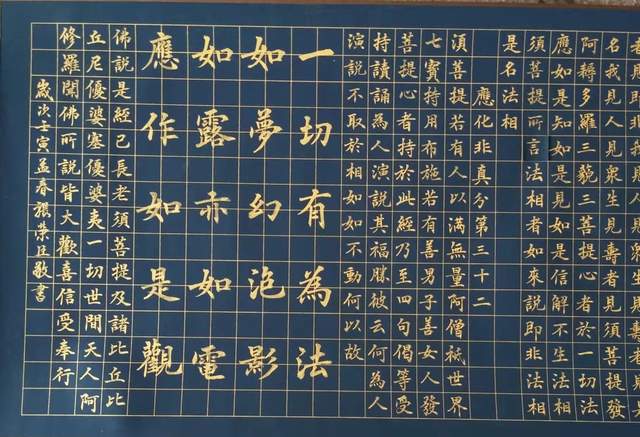 名我見人見眾生見壽者見須菩提發
阿耨多羅三藐三菩提心者於一切法
應如是知如是見如是信解不生法相
須菩提所言法相者如來說即非法相
是名法相
應化非真分第三十二
須菩提若有人以滿無量阿僧祇世界
七寶持用布施若有善男子善女人發
菩提心者持於此經乃至四句偈等受
持讀誦為人演說其福勝彼云何為人
演說不取於相如如不動何以故
一切有為法
如夢幻泡影
如露亦如電
應作如是觀
佛說是經已長老須菩提及諸比丘比
丘尼優婆塞優婆夷一切世間天人阿
修羅聞佛所說皆大歡喜信受奉行
歲次壬寅孟春張榮臣敬書